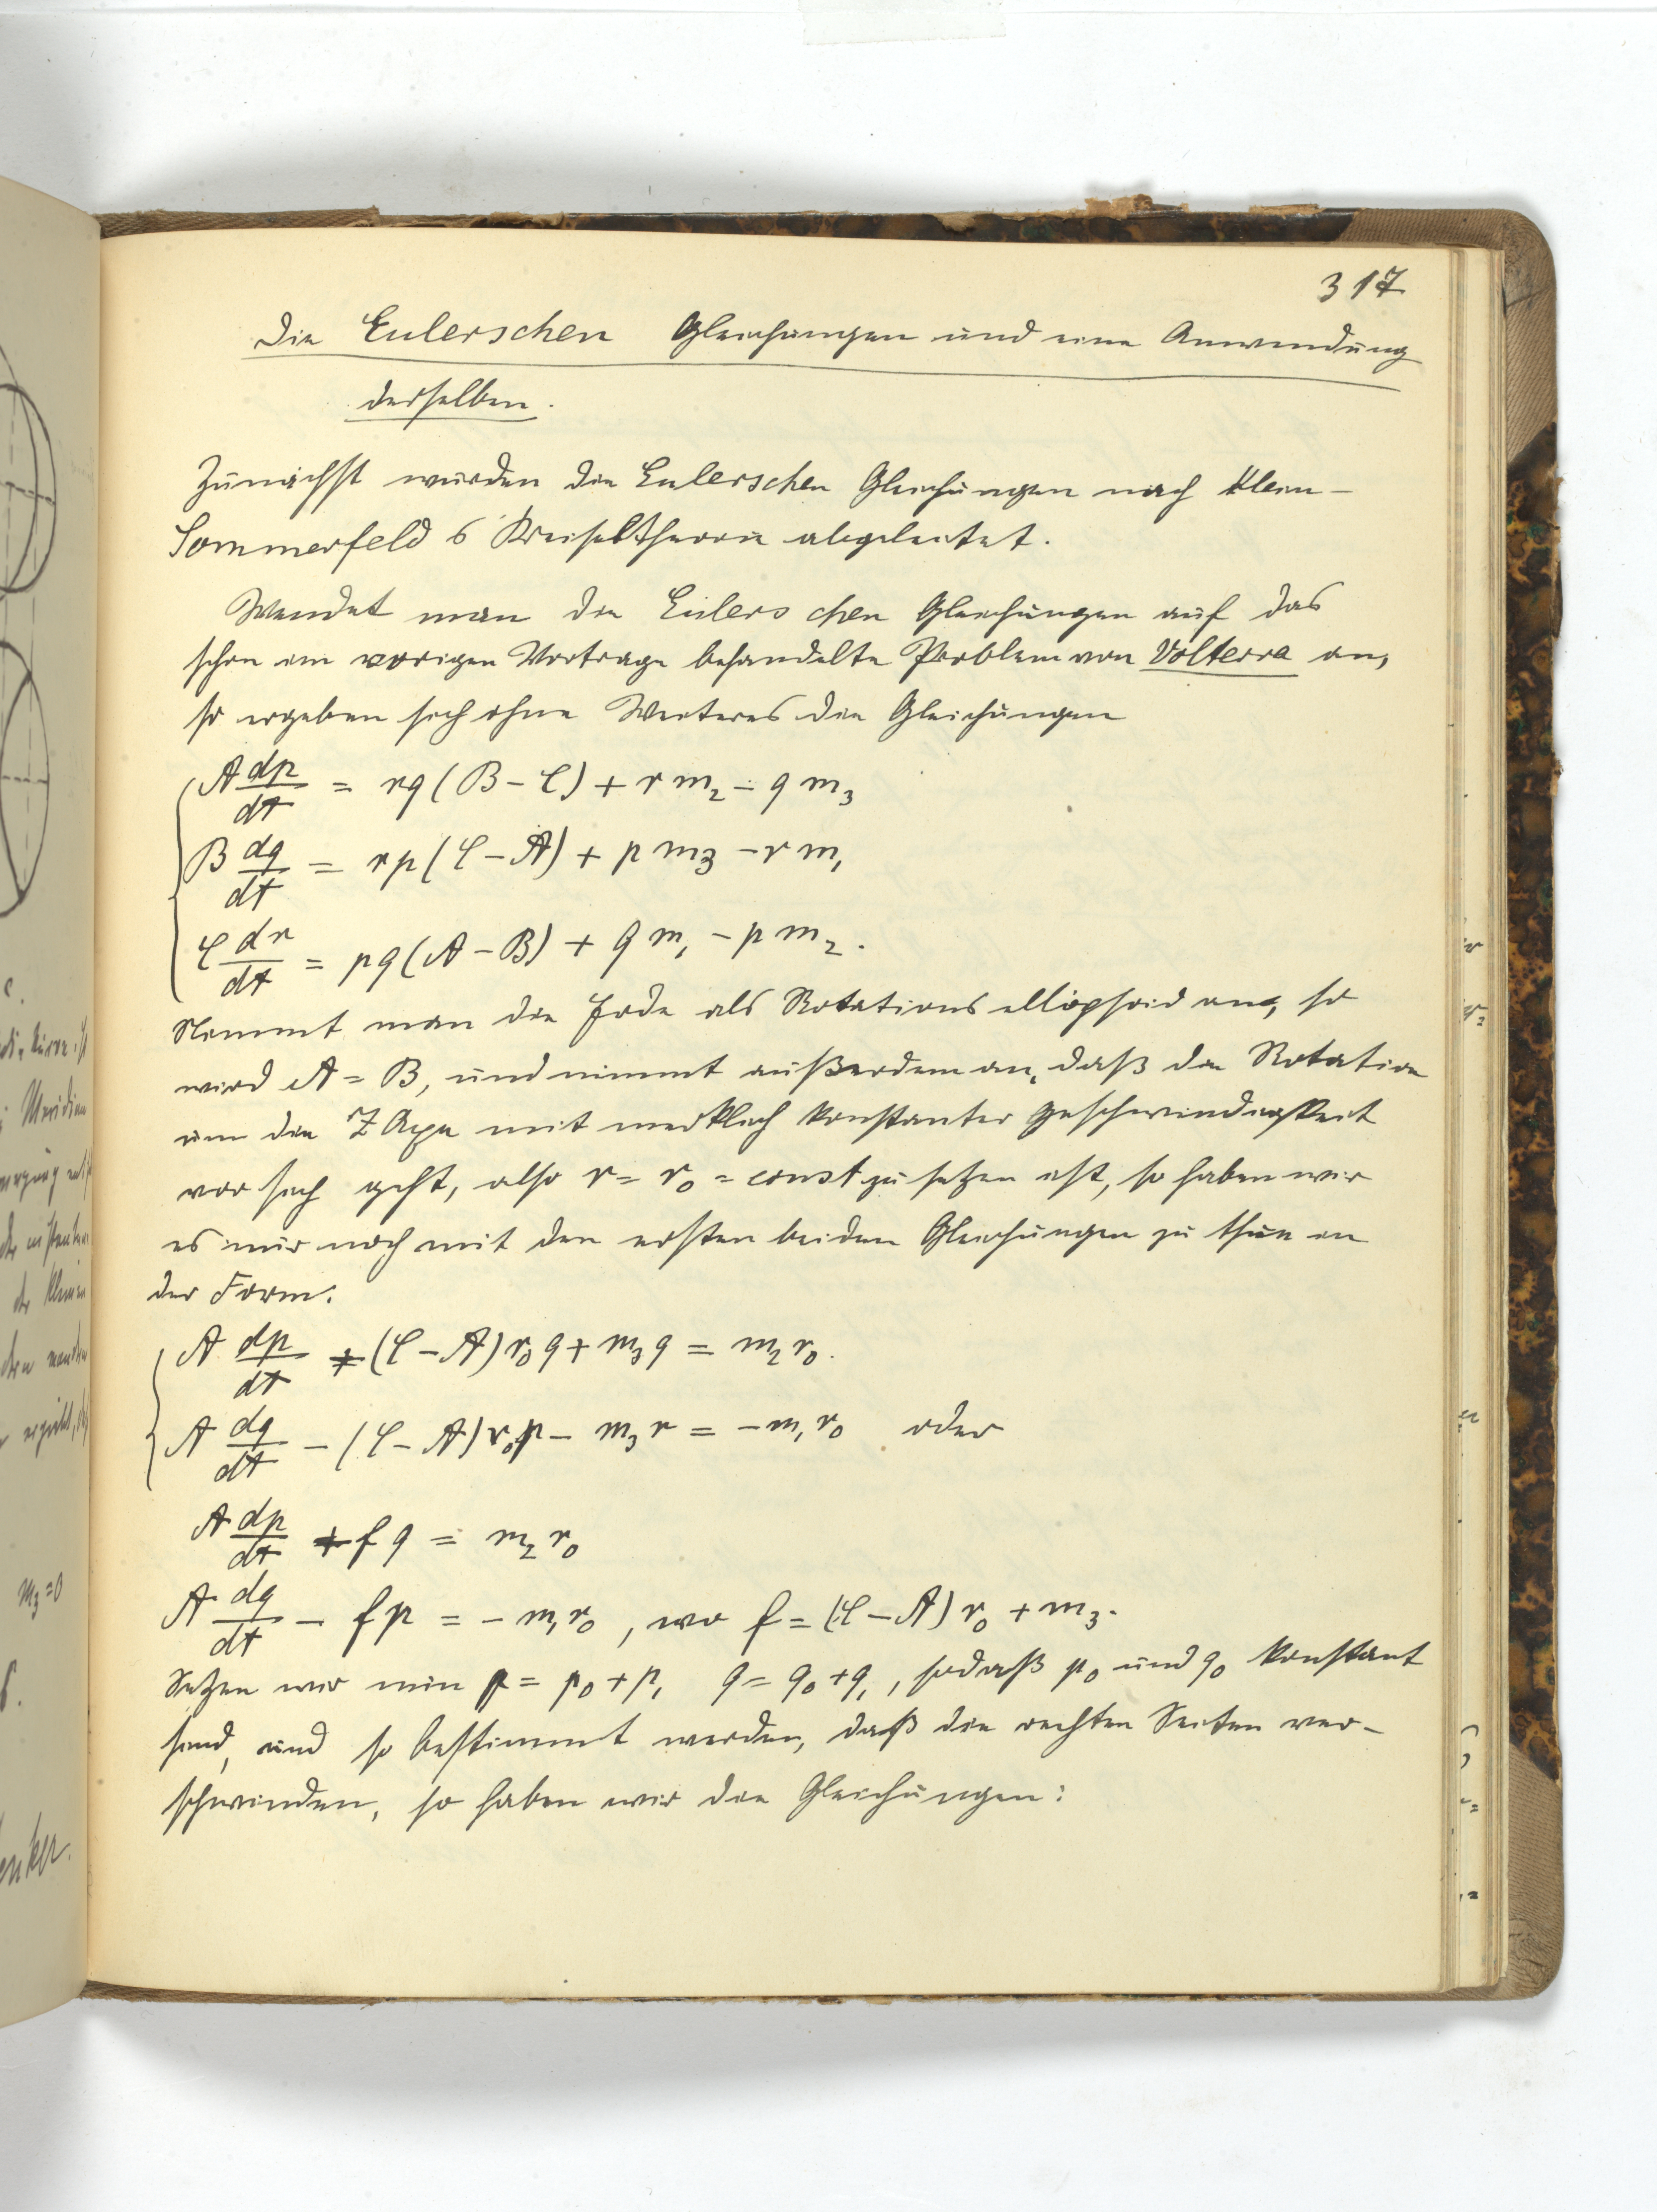 317
Die Eulerschen Gleichungen und eine Anwendung
derselben.
Zunächst wurden die Eulerschen Gleichungen nach Klein-
Sommerfelds Kreiseltheorie abgeleitet.
Wendet man die Eulerschen Gleichungen auf das
schon im vorigen Vortrage behandelte Problem von Volterra an,
so ergeben sich ohne Weiteres die Gleichungen
A dp/dt = rq (B - C) + r m₂ - q m₃
B dq/dt = rp (C - A) + p m₃ - r m₁
C dr/dt = pq (A - B) + q m₁ - p m₂.
Nimmt man die Erde als Rotationsellipsoid an, so
wird A = B, und nimmt außerdem an, daß die Rotation
um die Z Axe mit merklich konstanter Geschwindigkeit
vor sich geht, also r = r₀ = const zu setzen ist, so haben wir
es nur noch mit den ersten beiden Gleichungen zu thun in
der Form:
A dp/dt + (C - A) r₀ q + m₃ q = m₂ r₀.
A dq/dt - (C - A) r₀ p - m₃ r = - m₁ r₀ oder
A dp/dt + f q = m₂ r₀
A dq/dt - f p = - m₁ r₀, wo f = (C - A) r₀ + m₃.
Setzen wir nun p = p₀ + p₁ q = q₀ + q₁, sodaß p₀ und q₀ konstant
sind, und so bestimmt werden, daß die rechten Seiten ver-
schwinden, so haben wir die Gleichungen:
m₃ = 0